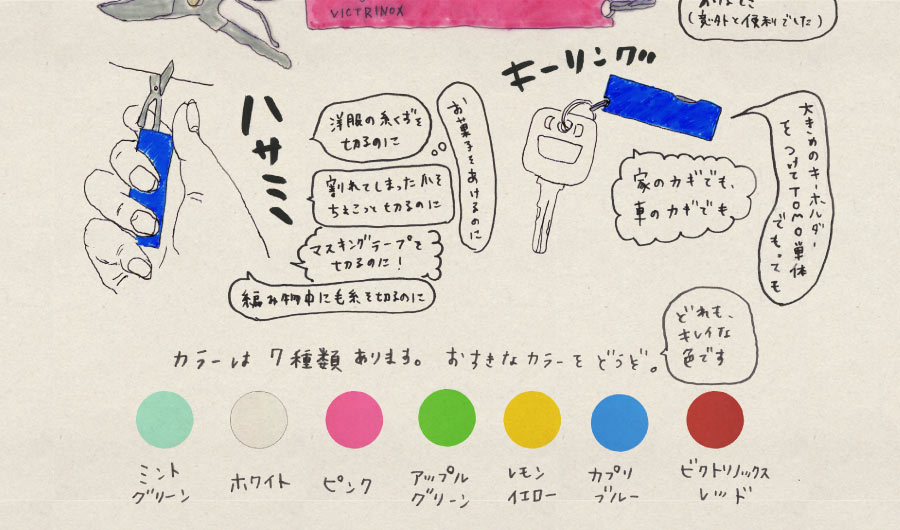 VICTRINOX
(意外と便利でした)
ハサミ
洋服の糸くずを
切るのに
お菓子をあけるのに
割れてしまった爪を
ちょこっと切るのに
マスキングテープを
切るのに!
編み物中にも糸を切るのに
キーリング
家のカギでも、
車のカギでも
大きめのキーホルダー
をつけてTOMO単体
でもっても
カラーは7種類あります。おすきなカラーをどうぞ。
どれも、
キレイな
色です
ミント
グリーン
ホワイト
ピンク
アップル
グリーン
レモン
イエロー
カプリ
ブルー
ビクトリノックス
レッド